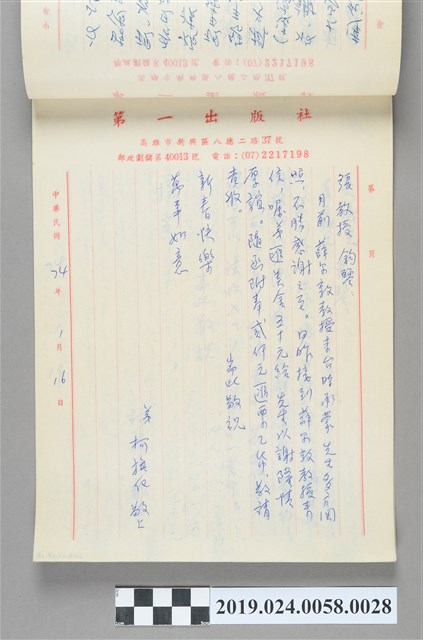 第一出版社
高雄市新興區八德二路37號
郵政劃儲第40013號 電話：(07)2217198
第 頁
張教授鈞鑒：
月前薛尔敦教授來台時承蒙先生多方關
照，不勝感謝之至。日昨接到薛尔敦教授來
信，囑弟匯美金五十元給先生以謝隆情
厚誼。隨函附奉貳仟元匯票乙紙，敬請
查收。 耑此敬祝
新春快樂
萬事如意
弟 柯旗化敬上
中華民國74年1月16日
2019.024.0058.0028